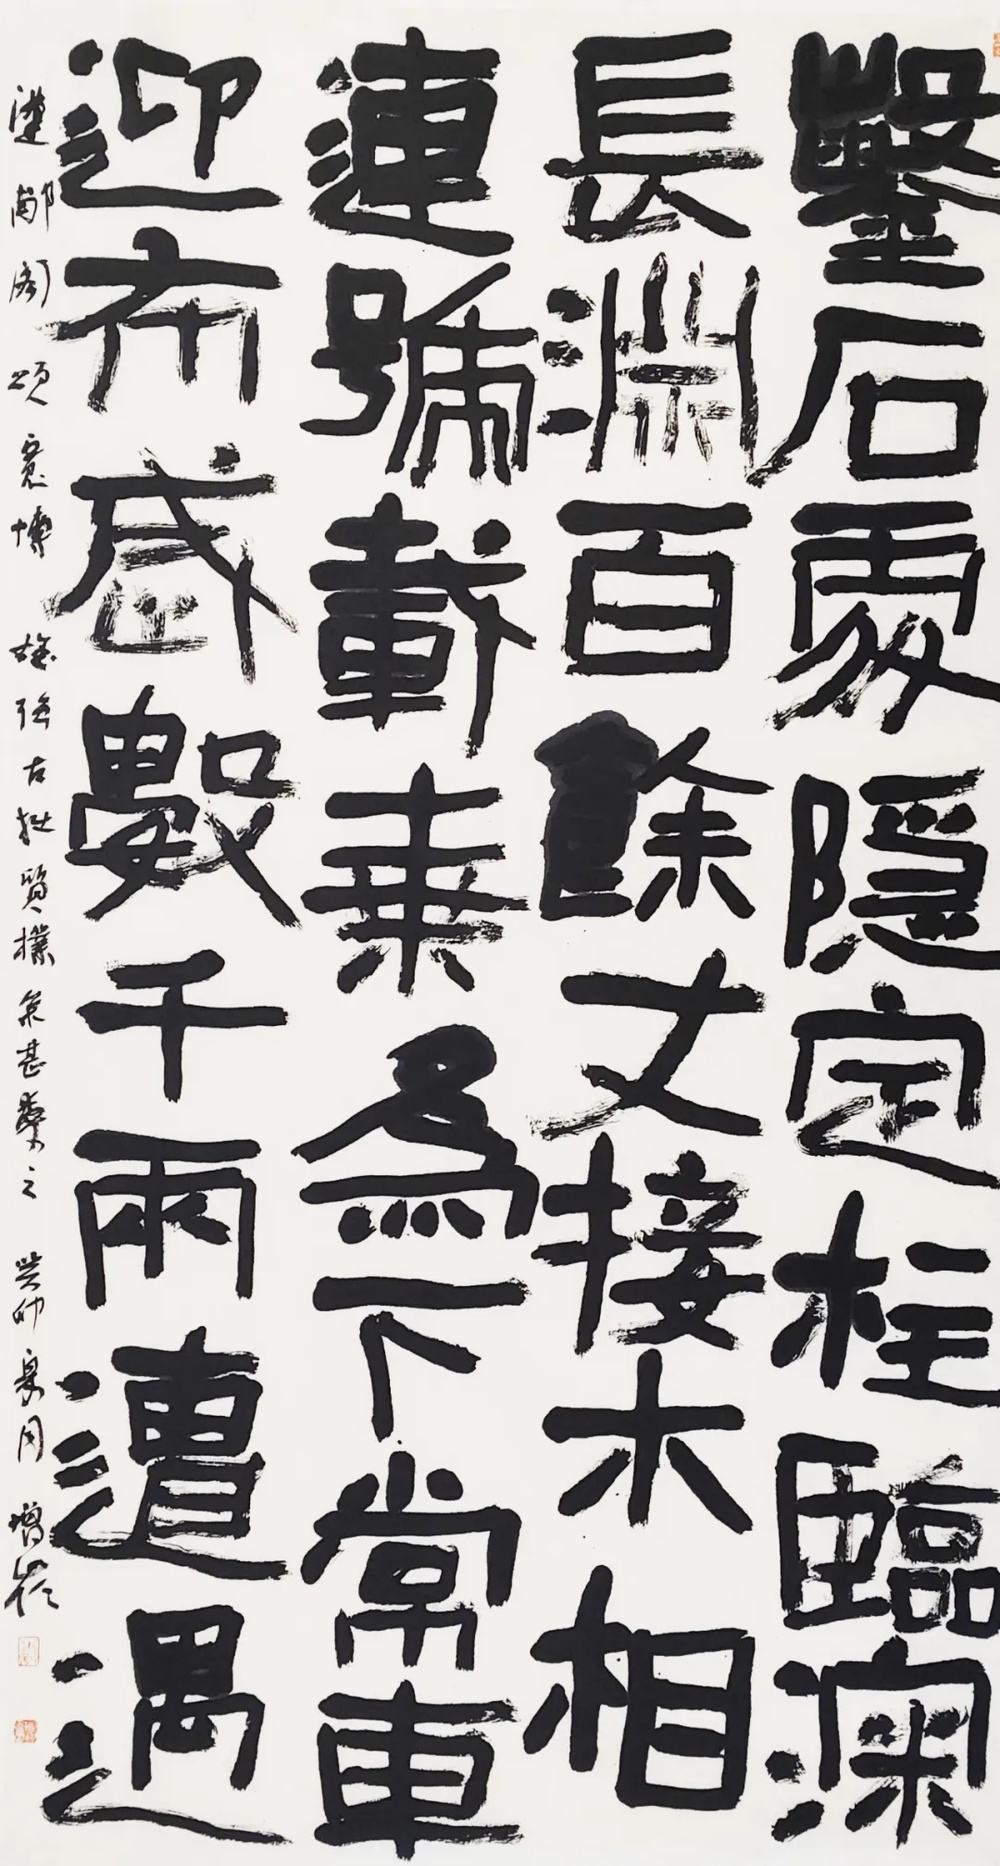 鑿石處隱定柱臨深
長淵百餘丈接木相
連號載乘為下常車
迎布歲數千兩遭遇
漢郙閣頌寬博雄強古拙質樸余甚愛之癸卯夏月增